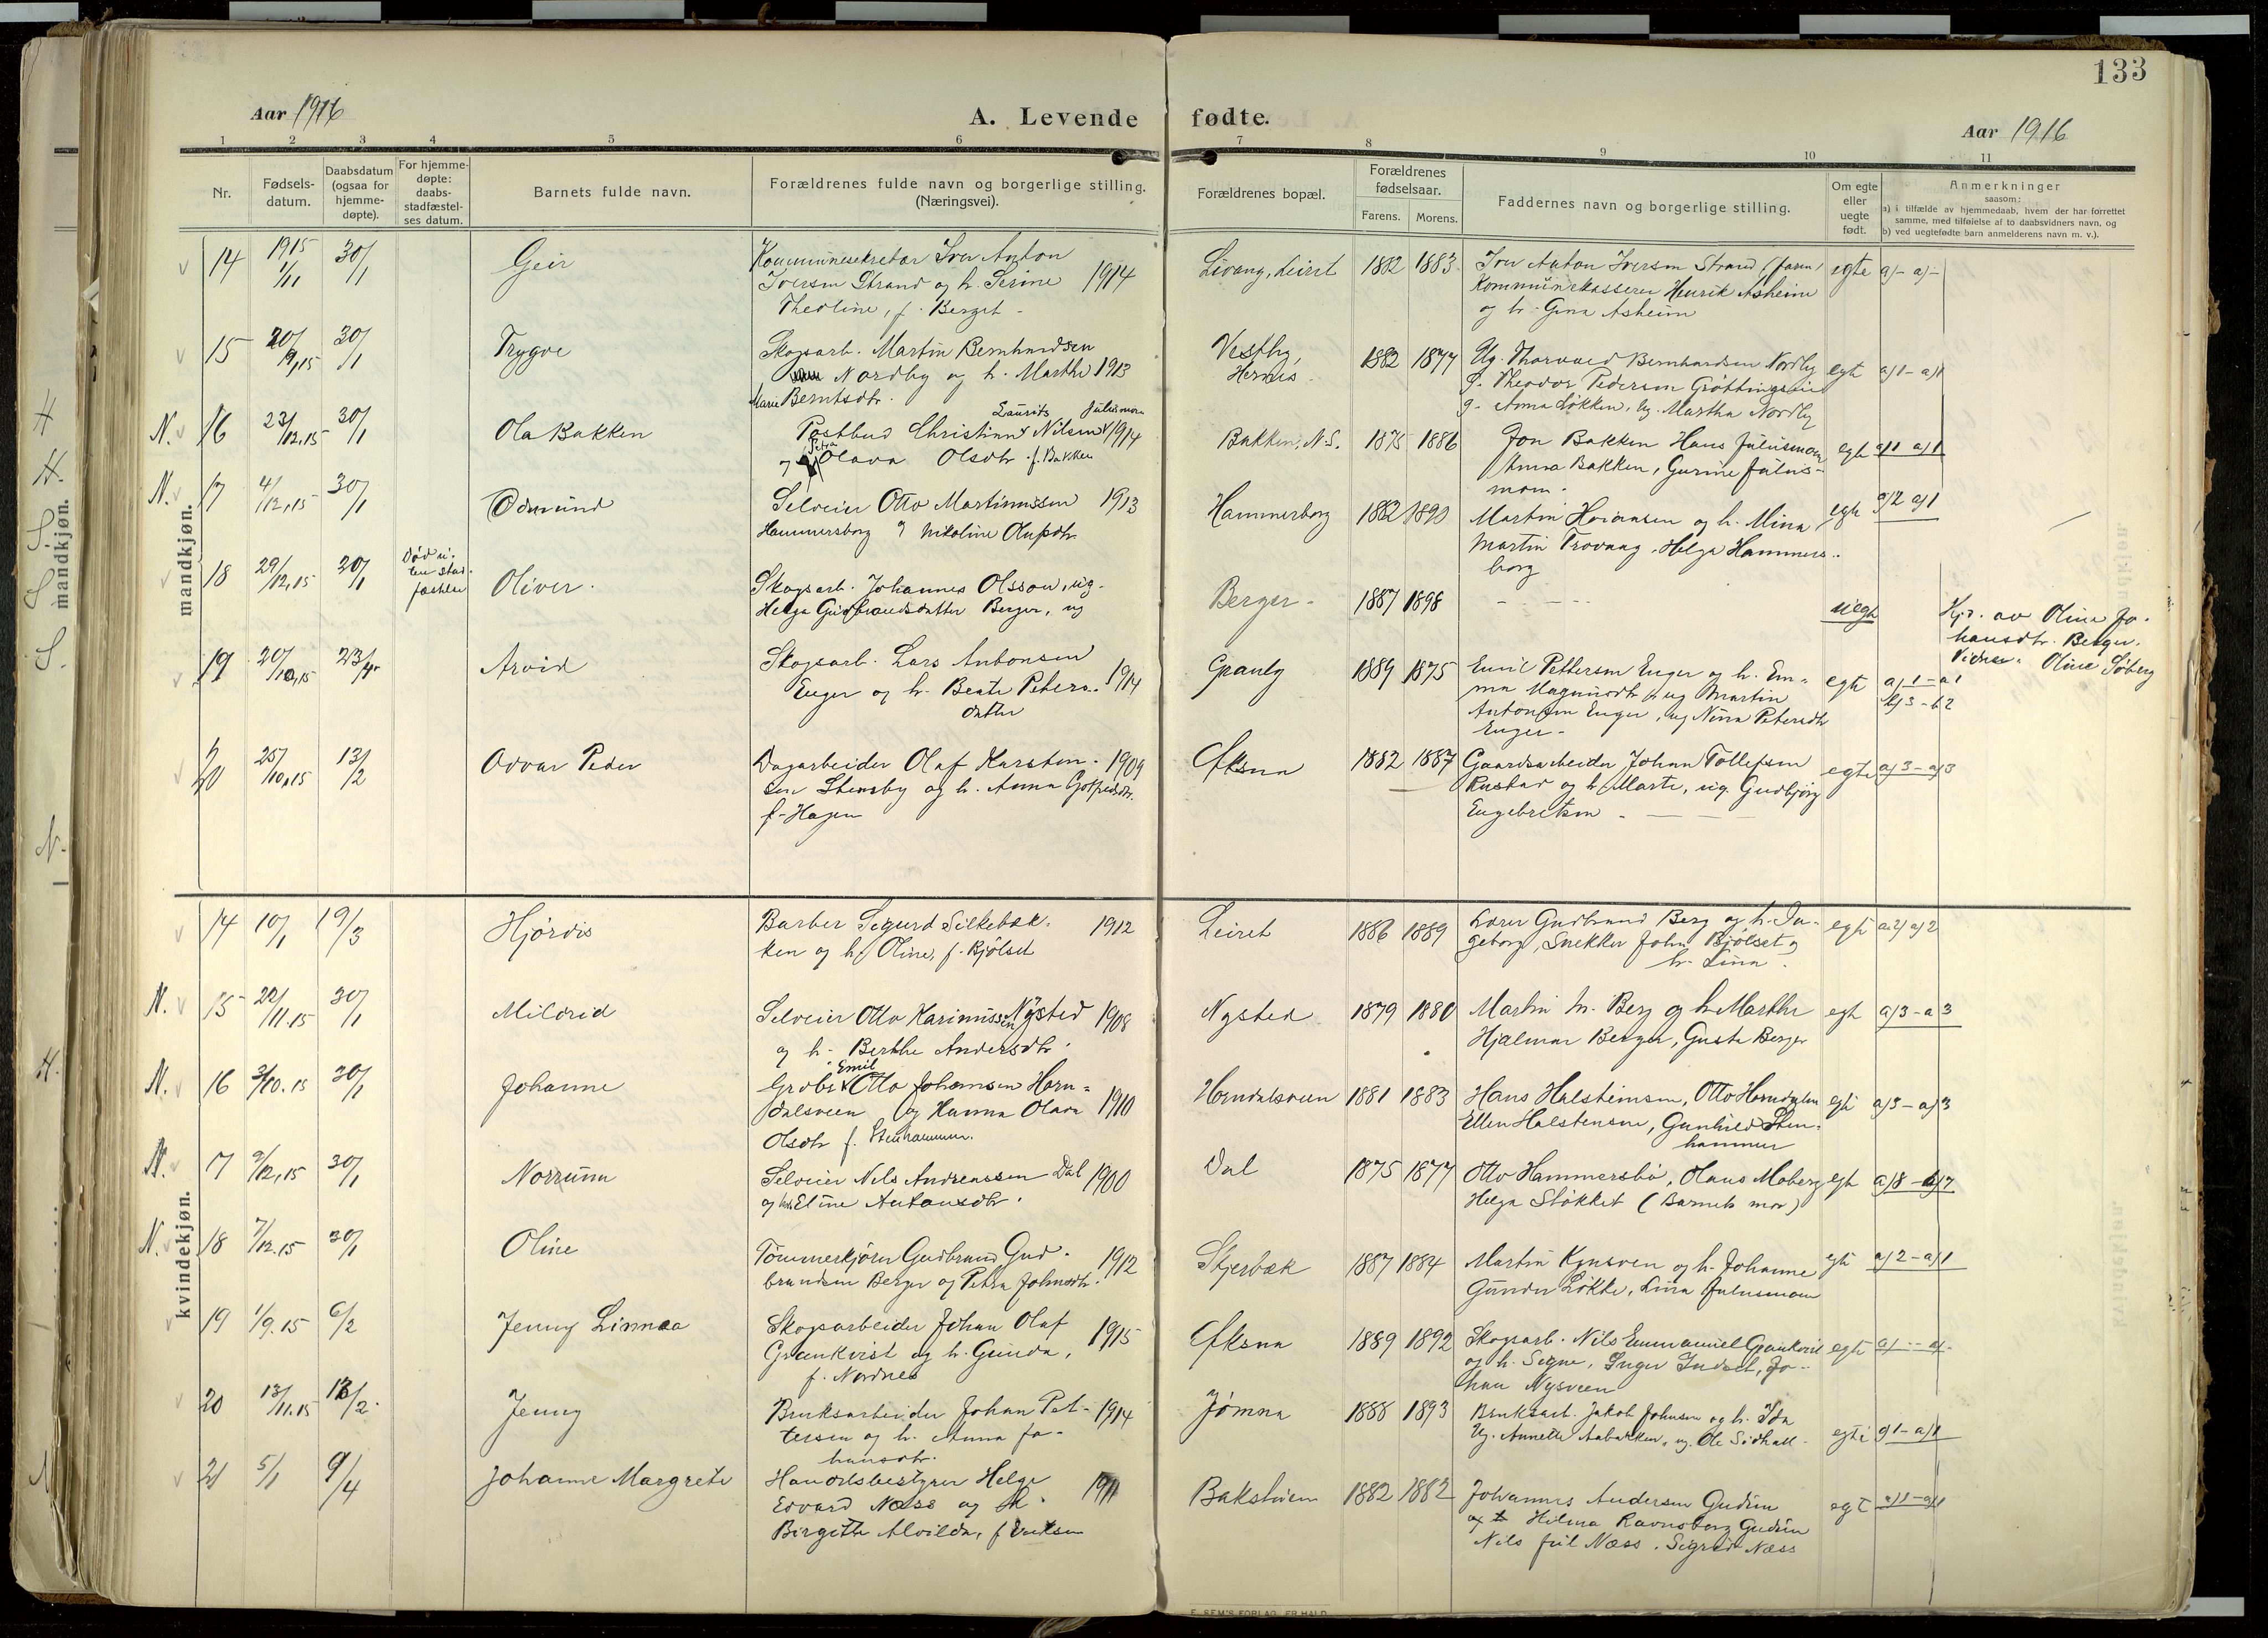 133
Aar 1916
A. Levende fødte.
Aar 1916
1 2 3 4 5 6 7 8 9 10 11
Nr.
Fødsels-
datum.
Daabsdatum
(ogsaa for
hjemme-
døpte).
For hjemme-
døpte:
daabs-
stadfæstel-
ses datum.
Barnets fulde navn.
Forældrenes fulde navn og borgerlige stilling.
(Næringsvei).
Forældrenes bopæl.
Forældrenes
fødselsaar.
Farens. Morens.
Faddernes navn og borgerlige stilling.
Om egte
eller
uegte
født.
Anmerkninger
saasom:
a) i tilfælde av hjemmedaab, hvem der har forrettet
samme, med tilføielse af to daabsvidners navn, og
b) ved uegtefødte barn anmelderens navn m. v.).
mandkjøn.
mandkjøn.
14 1915 1/11 30/1 Geir
Kommunesekretær Iver Anton
Iversen Strand og h. Serine 1914
Theoline, f. Berget
Livang, Leiret 1882 1883
Iver Anton Iversen Strand (faren)
Kommunekasserer Henrik Asheim
og h. Gina Asheim
egte a)- a)-
15 20/9,15 30/1 Trygve
Skogsarb. Martin Bernhardsen
Nordby og h. Marthe 1913
Marie Berntsdtr.
Vestby,
Hernes 1882 1877
Ug. Thorvald Bernhardsen Nordby
G. Theodor Pedersen Grøttingsveie
g. Anna Løkken, ug. Martha Nordby
egte a)1-a)1
N. 16 23/12,15 30/1 Ola Bakken
Laurits Juliusmoen
Postbud Christian Nilsen 1914
og Olava Olsdtr. f. Bakken
Bakken, N.S. 1875 1886
Jon Bakken Hans Juliusmoen
Anna Bakken, Gurine Julius-
moen.
egte a)1 a)1
N. 17 4/12,15 30/1 Odmund
Selveier Otto Martinussen 1913
Hammersborg og Nikoline Olufsdtr.
Hammerborg 1882 1890
Martin Johansen og h. Mina
Martin Trovaag, Helga Hammers-
borg
egte a)2 a)1
18 29/12,15 20/1
Død u-
ten stad-
fæstelse
Oliver.
Skogsarb. Johannes Olsson, ug.
Helga Gudbrandsdatter Berger, ug
Berger 1887 1898
uegte
Hjd. av Oline Jo-
hansdtr. Berger.
Vidner: Oline Søberg
19 20/10,15 23/4 Arvid
Skogsarb. Lars Antonsen
Enger og h. Beate Peters- 1914
datter
Granly 1889 1875
Emil Pettersen Enger og h. Em-
ma Magnusdtr, ug Martin
Antonsen Enger, ug Nina Petersdtr
Enger
egte a)1-a1
b)3-b2
20 25/10,15 13/2 Odvar Peder
Dagarbeider Olaf Karsten- 1909
sen Stensby og h. Anna Gotfredsdtr.
f. Hagen
Øksna 1882 1887
Gaardsarbeider Johan Tollefsen
Rustad og h. Marte, ug. Gudbjørg
Engebretsen
egte a)3-a)3
14 10/1 19/3 Hjørdis
Barber Sigurd Silkebæk- 1912
ken og h. Oline, f. Bjølset
Leiret 1886 1889
Lærer Gudbrand Berg og h. In-
geborg, Snekker John Bjølset og
h. Lina.
egte a2) a)2
N. 15 22/11.15 30/1 Mildrid
Selveier Otto Karinussen Nysted 1908
og h. Berthe Andersdtr.
Nysted 1879 1880
Martin M. Berg og h. Marthe
Hjalmar Berger, Gusta Berger
egte a)3-a3
N. 16 3/10.15 30/1 Johanne
Emil
Grubr. Otto Johansen Horn-
dalsveen og Hanna Olava 1910
Olsdtr f. Stenhammer.
Horndalsveen 1881 1883
Hans Halstensen, Otto Horndalen
Ellen Halstensen, Gunhild Sten-
hammer
egte a)3-a)3
kvindekjøn.
N. 17 2/12,15 30/1 Norrunn
Selveier Nils Andreassen Dal 1900
og h. Eline Antonsdtr.
Dal 1875 1877
Otto Hammersbø, Olaus Moberg
Helga Støkket (Barnets mor)
egte a)8
N. 18 7/12.15 30/1 Oline
Tømmerkjører Gudbrand Gud- 1912
brandsen Berger og Petra Johnsdtr.
Skjerbæk 1887 1884
Martin Kynsveen og h. Johanne
Gunder Løkke, Lina Juliusmoen
egte a)2-a)1
19 1/9.15 6/2 Jenny Linnea
Skogsarbeider Johan Olaf 1915
Grankvist og h. Gunda,
f. Nordnes
Øksna 1889 1892
Skogsarb. Nils Emmanuel Grankvist
og h. Signe, Inger Indset, Jo-
han Nysveen
egte a)-- a)-
20 13/11.15 13/2. Jenny
Bruksarbeider Johan Pet- 1914
tersen og h. Anna Jo-
hansdtr.
Jømna 1888 1893
Bruksarb. Jakob Johnsen og h. Ida
Ug. Annette Aabakken, ug. Ole Sidhall
egte a)1-a)1
21 5/1 9/4 Johanne Margrete
Handelsbestyrer Helge 1911
Edvard Næss og h.
Birgitte Alvilda, f. Eriksen
Bakstuen 1882 1882
Johannes Andersen Gudim
og Hilma Ravnsborg Gudim
Nils Juil Næss. Sigrid Næss
egte a)1-a)1
E. SEM'S FORLAG, FR.HALD